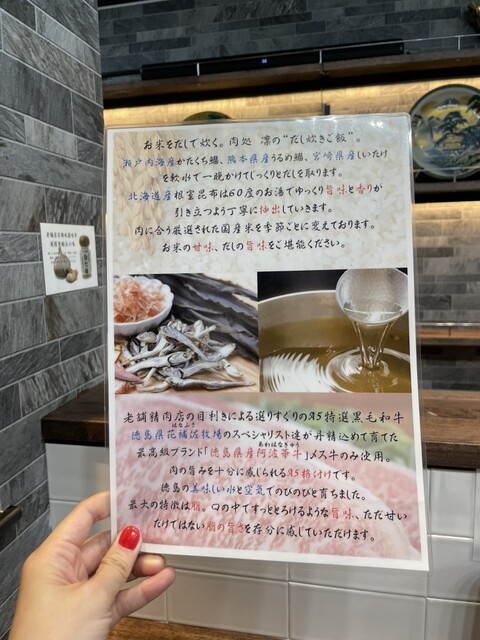 お米をだしで炊く。肉処 凛の“だし炊きご飯”。
瀬戸内海産かたくち鰯、熊本県産うるめ鰯、宮崎県産しいたけ
を軟水で一晩かけてじっくりとだしを取ります。
北海道産根室昆布は60度のお湯でゆっくり旨味と香りが
引き立つよう丁寧に抽出していきます。
肉に合う厳選された国産米を季節ごとに変えております。
お米の甘味、だしの旨味をご堪能ください。
老舗精肉店の目利きによる選りすぐりのA5特選黒毛和牛
はなふさ
徳島県花補佐牧場のスペシャリスト達が丹精込めて育てた
あわはなぎゅう
最高級ブランド「徳島県産阿波華牛」メス牛のみ使用。
肉の旨みを十分に感じられるA5格付けです。
徳島の美味しい水と空気でのびのびと育ちました。
最大の特徴は脂。口の中ですっととろけるような旨味、ただ甘い
だけではない脂の旨さを存分に感じていただけます。